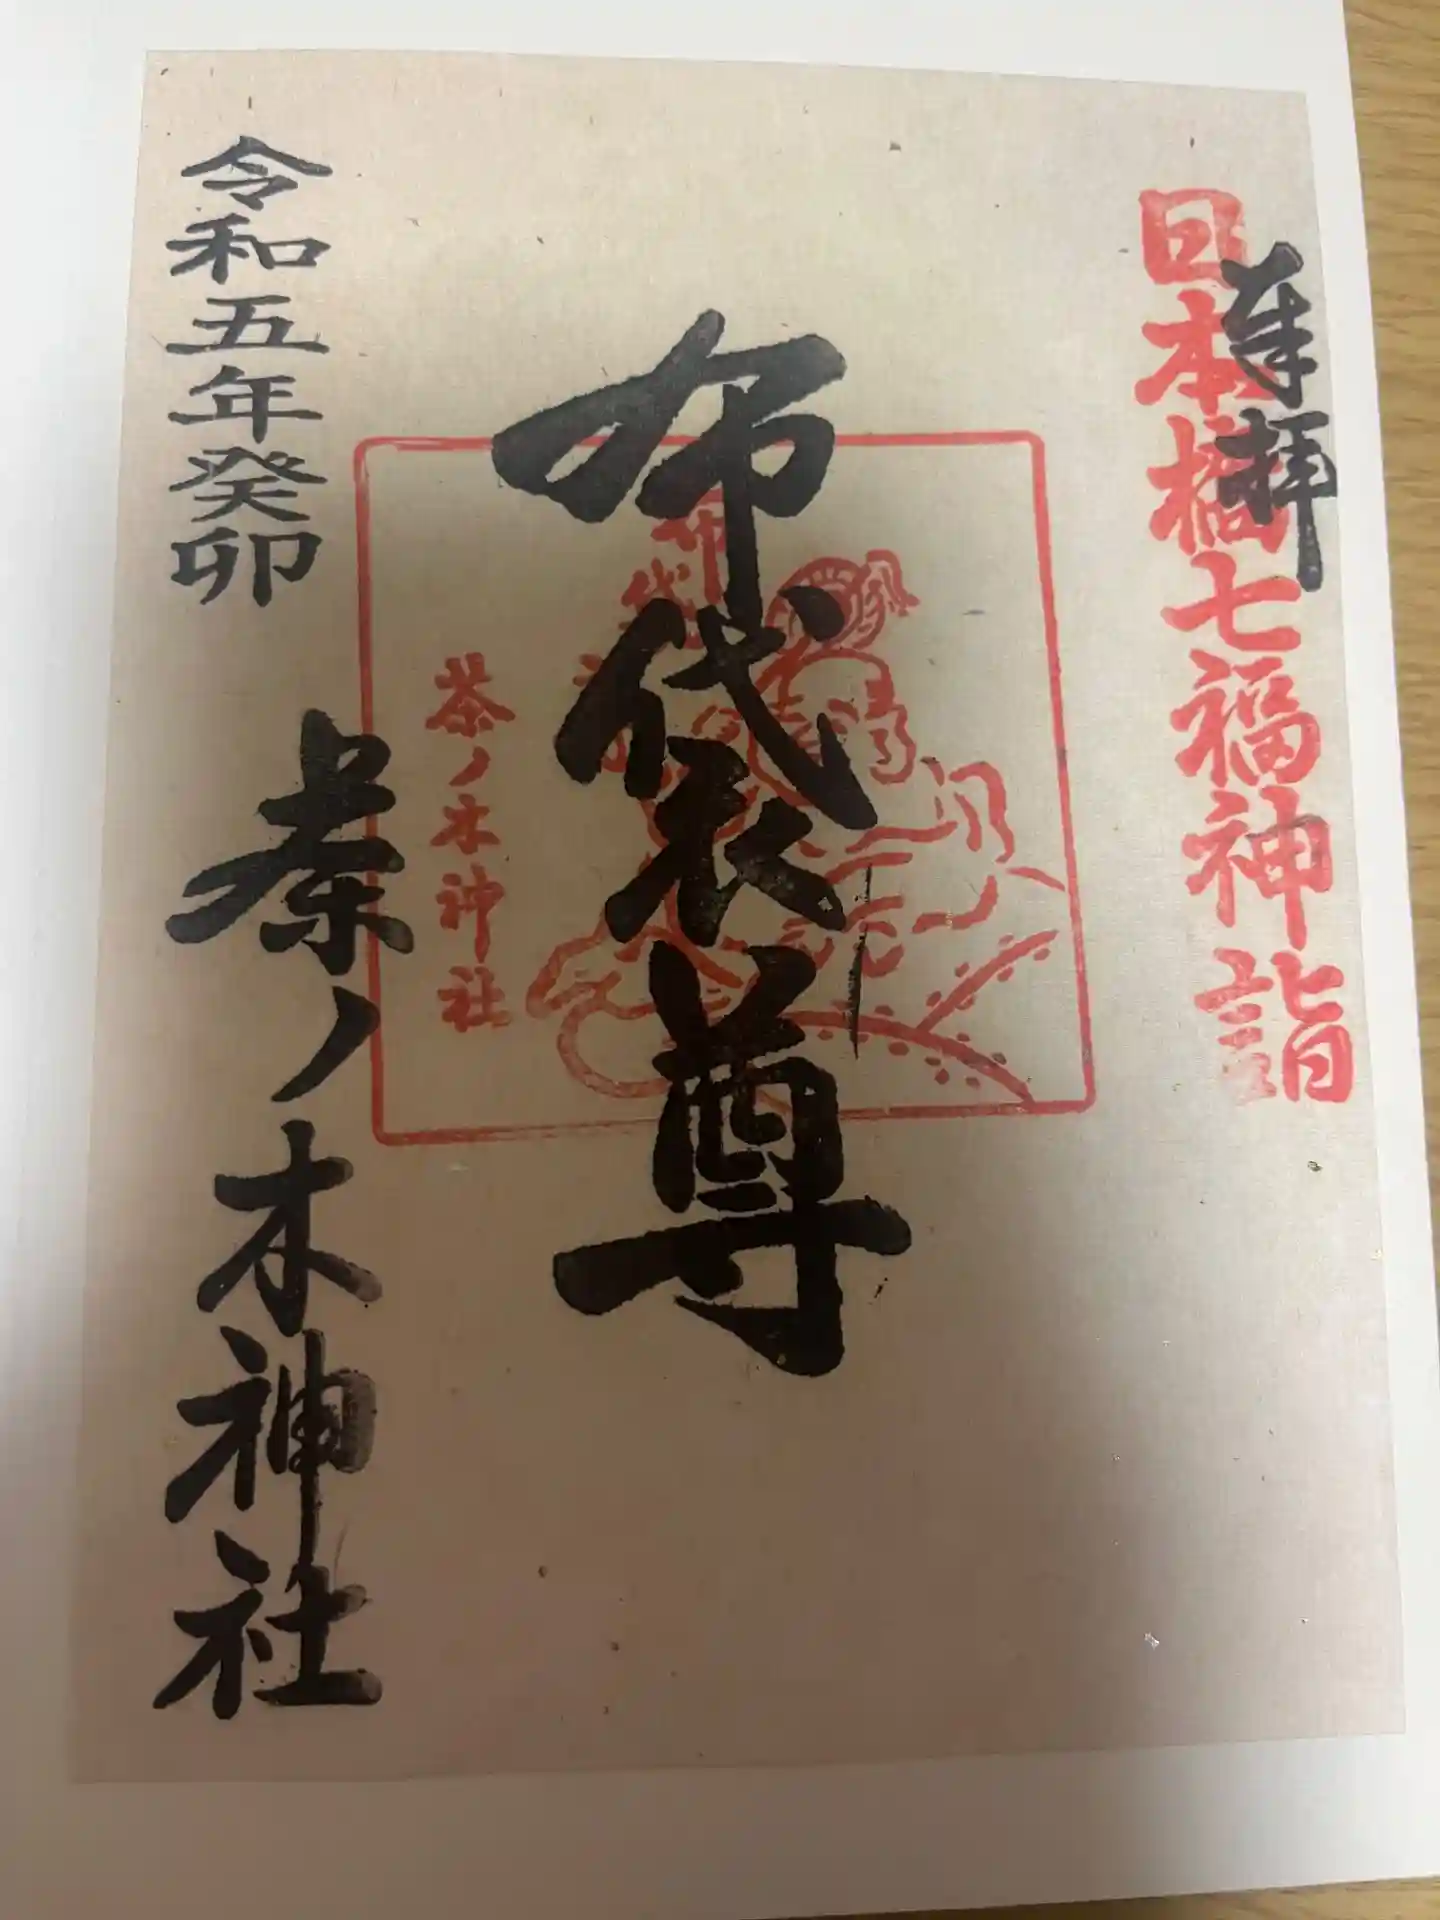 奉拝
日本橋七福神詣
布袋尊
布袋
茶ノ木神社
令和五年癸卯
茶ノ木神社